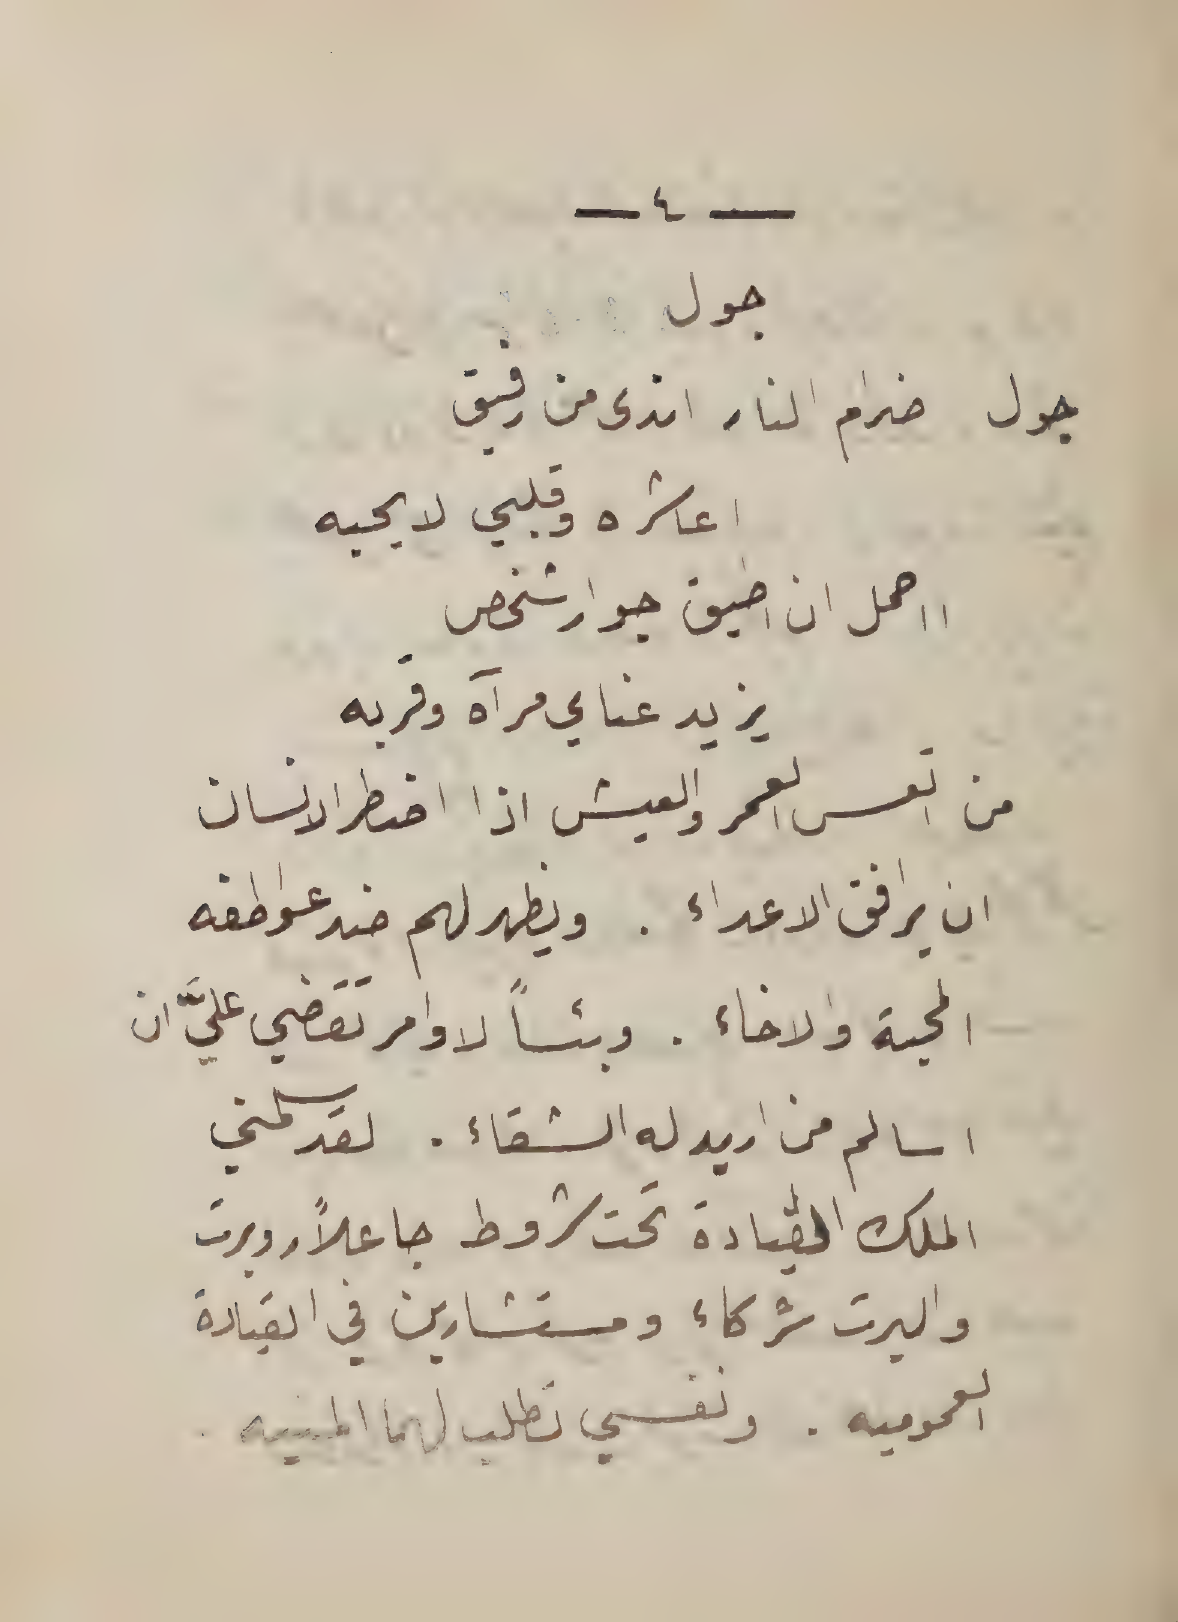 — ٤ —
جول
جول ضرام النار اندى من رفيق
اعاشره وقلبي لا يحبه
ااحمل ان اطيق جوار شخص
يزيد عناي مرآه وقربه
من اتعس العمر والعيش اذا اضطر الانسان
ان يرافق الاعداء . ويظهر لهم ضد عواطفه
المحبة والاخاء . وبئساً لاوامر تقضي عليَّ ان
اسالم من اريد له الشقاء . لقد سلمني
الملك القيادة تحت شروط جاعلاً روبرت
والبرت شركاء ومستشارين في القيادة
العموميه . ونفسي تطلب لهما المنيه .